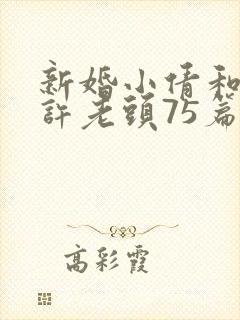 新婚小倩和
許老頭75篇
高彩霞